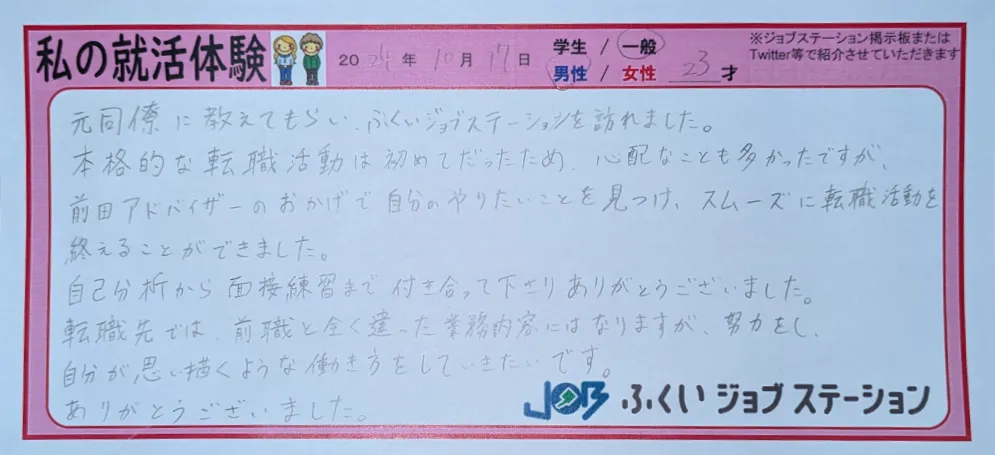 私の就活体験
2024年10月17日
学生 / 一般
男性 / 女性 23才
※ジョブステーション掲示板または
Twitter等で紹介させていただきます
元同僚に教えてもらい、ふくいジョブステーションを訪れました。
本格的な転職活動は初めてだったため、心配なことも多かったですが、
前田アドバイザーのおかげで自分のやりたいことを見つけ、スムーズに転職活動を
終えることができました。
自己分析から面接練習まで付き合って下さりありがとうございました。
転職先では、前職と全く違った業務内容にはなりますが、努力をし、
自分が思い描くような働き方をしていきたいです。
ありがとうございました。
JOB ふくい ジョブ ステーション